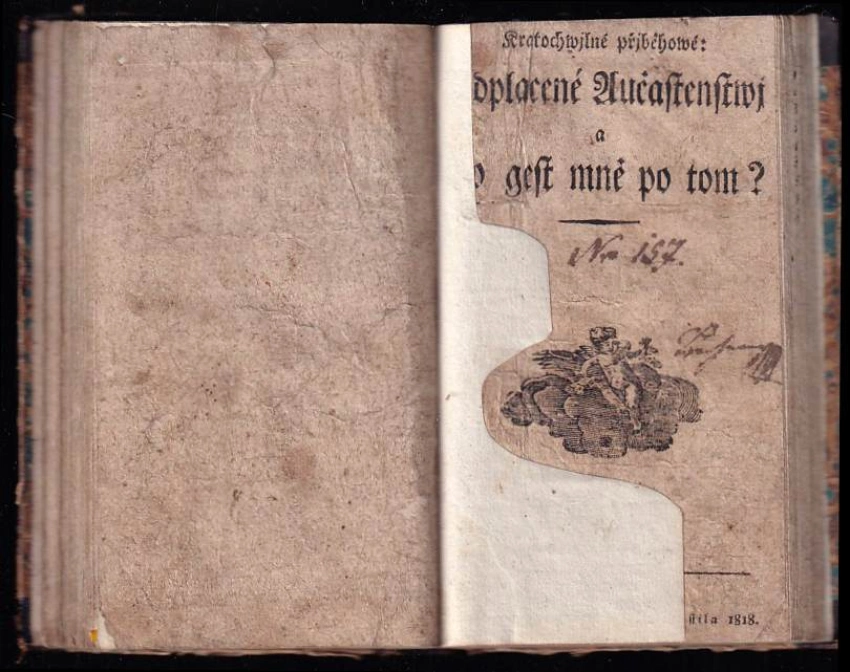 Kratochwjlné přjběhowé:
dplacené Aučastenstwj
a
o gest mně po tom?
No 157.
stila 1818.